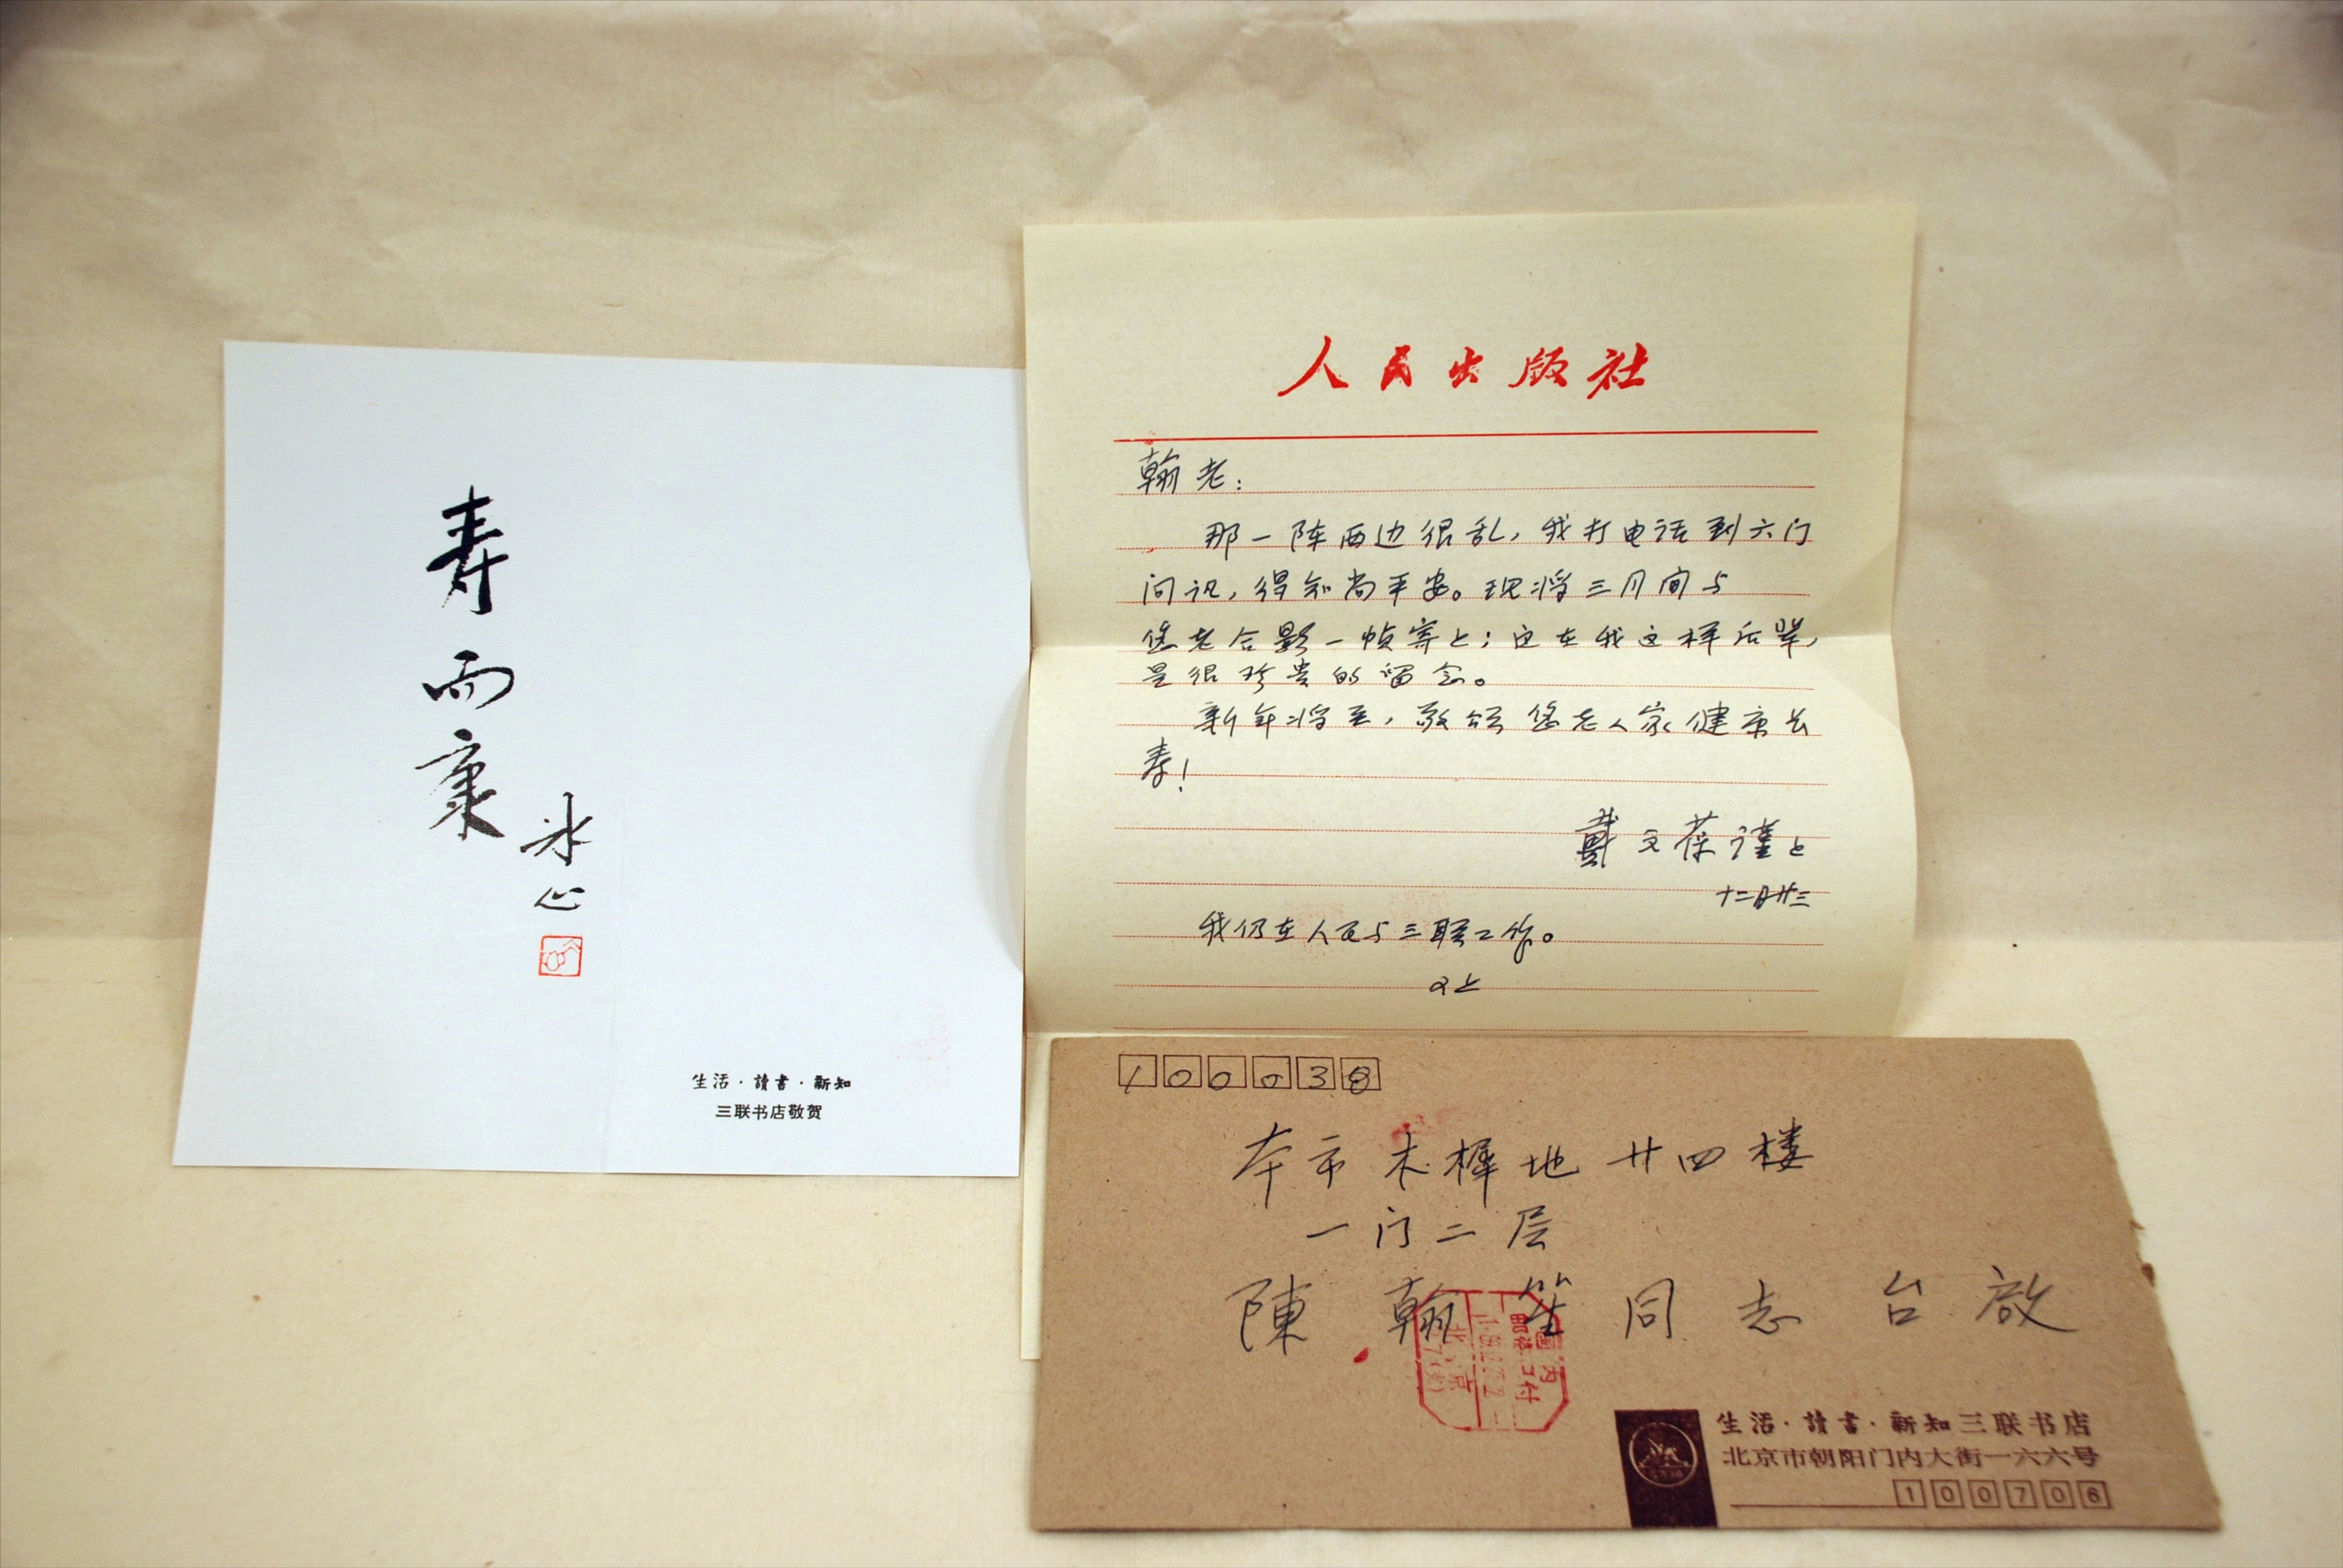 寿而康
冰心
生活·讀書·新知
三联书店敬贺
人民出版社
翰老：
那一阵西边很乱，我打电话到六门
问讯，得知尚平安。现将三月间与
您老合影一帧寄上；这在我这样后辈，
是很珍贵的留念。
新年将至，敬颂您老人家健康长
寿！
戴文葆谨上
十二月廿三
我仍在人民与三联工作。
又上
100038
本市木樨地廿四楼
一门二层
陳翰笙同志台啟
国内
北京
生活·讀書·新知三联书店
北京市朝阳门内大街一六六号
100706